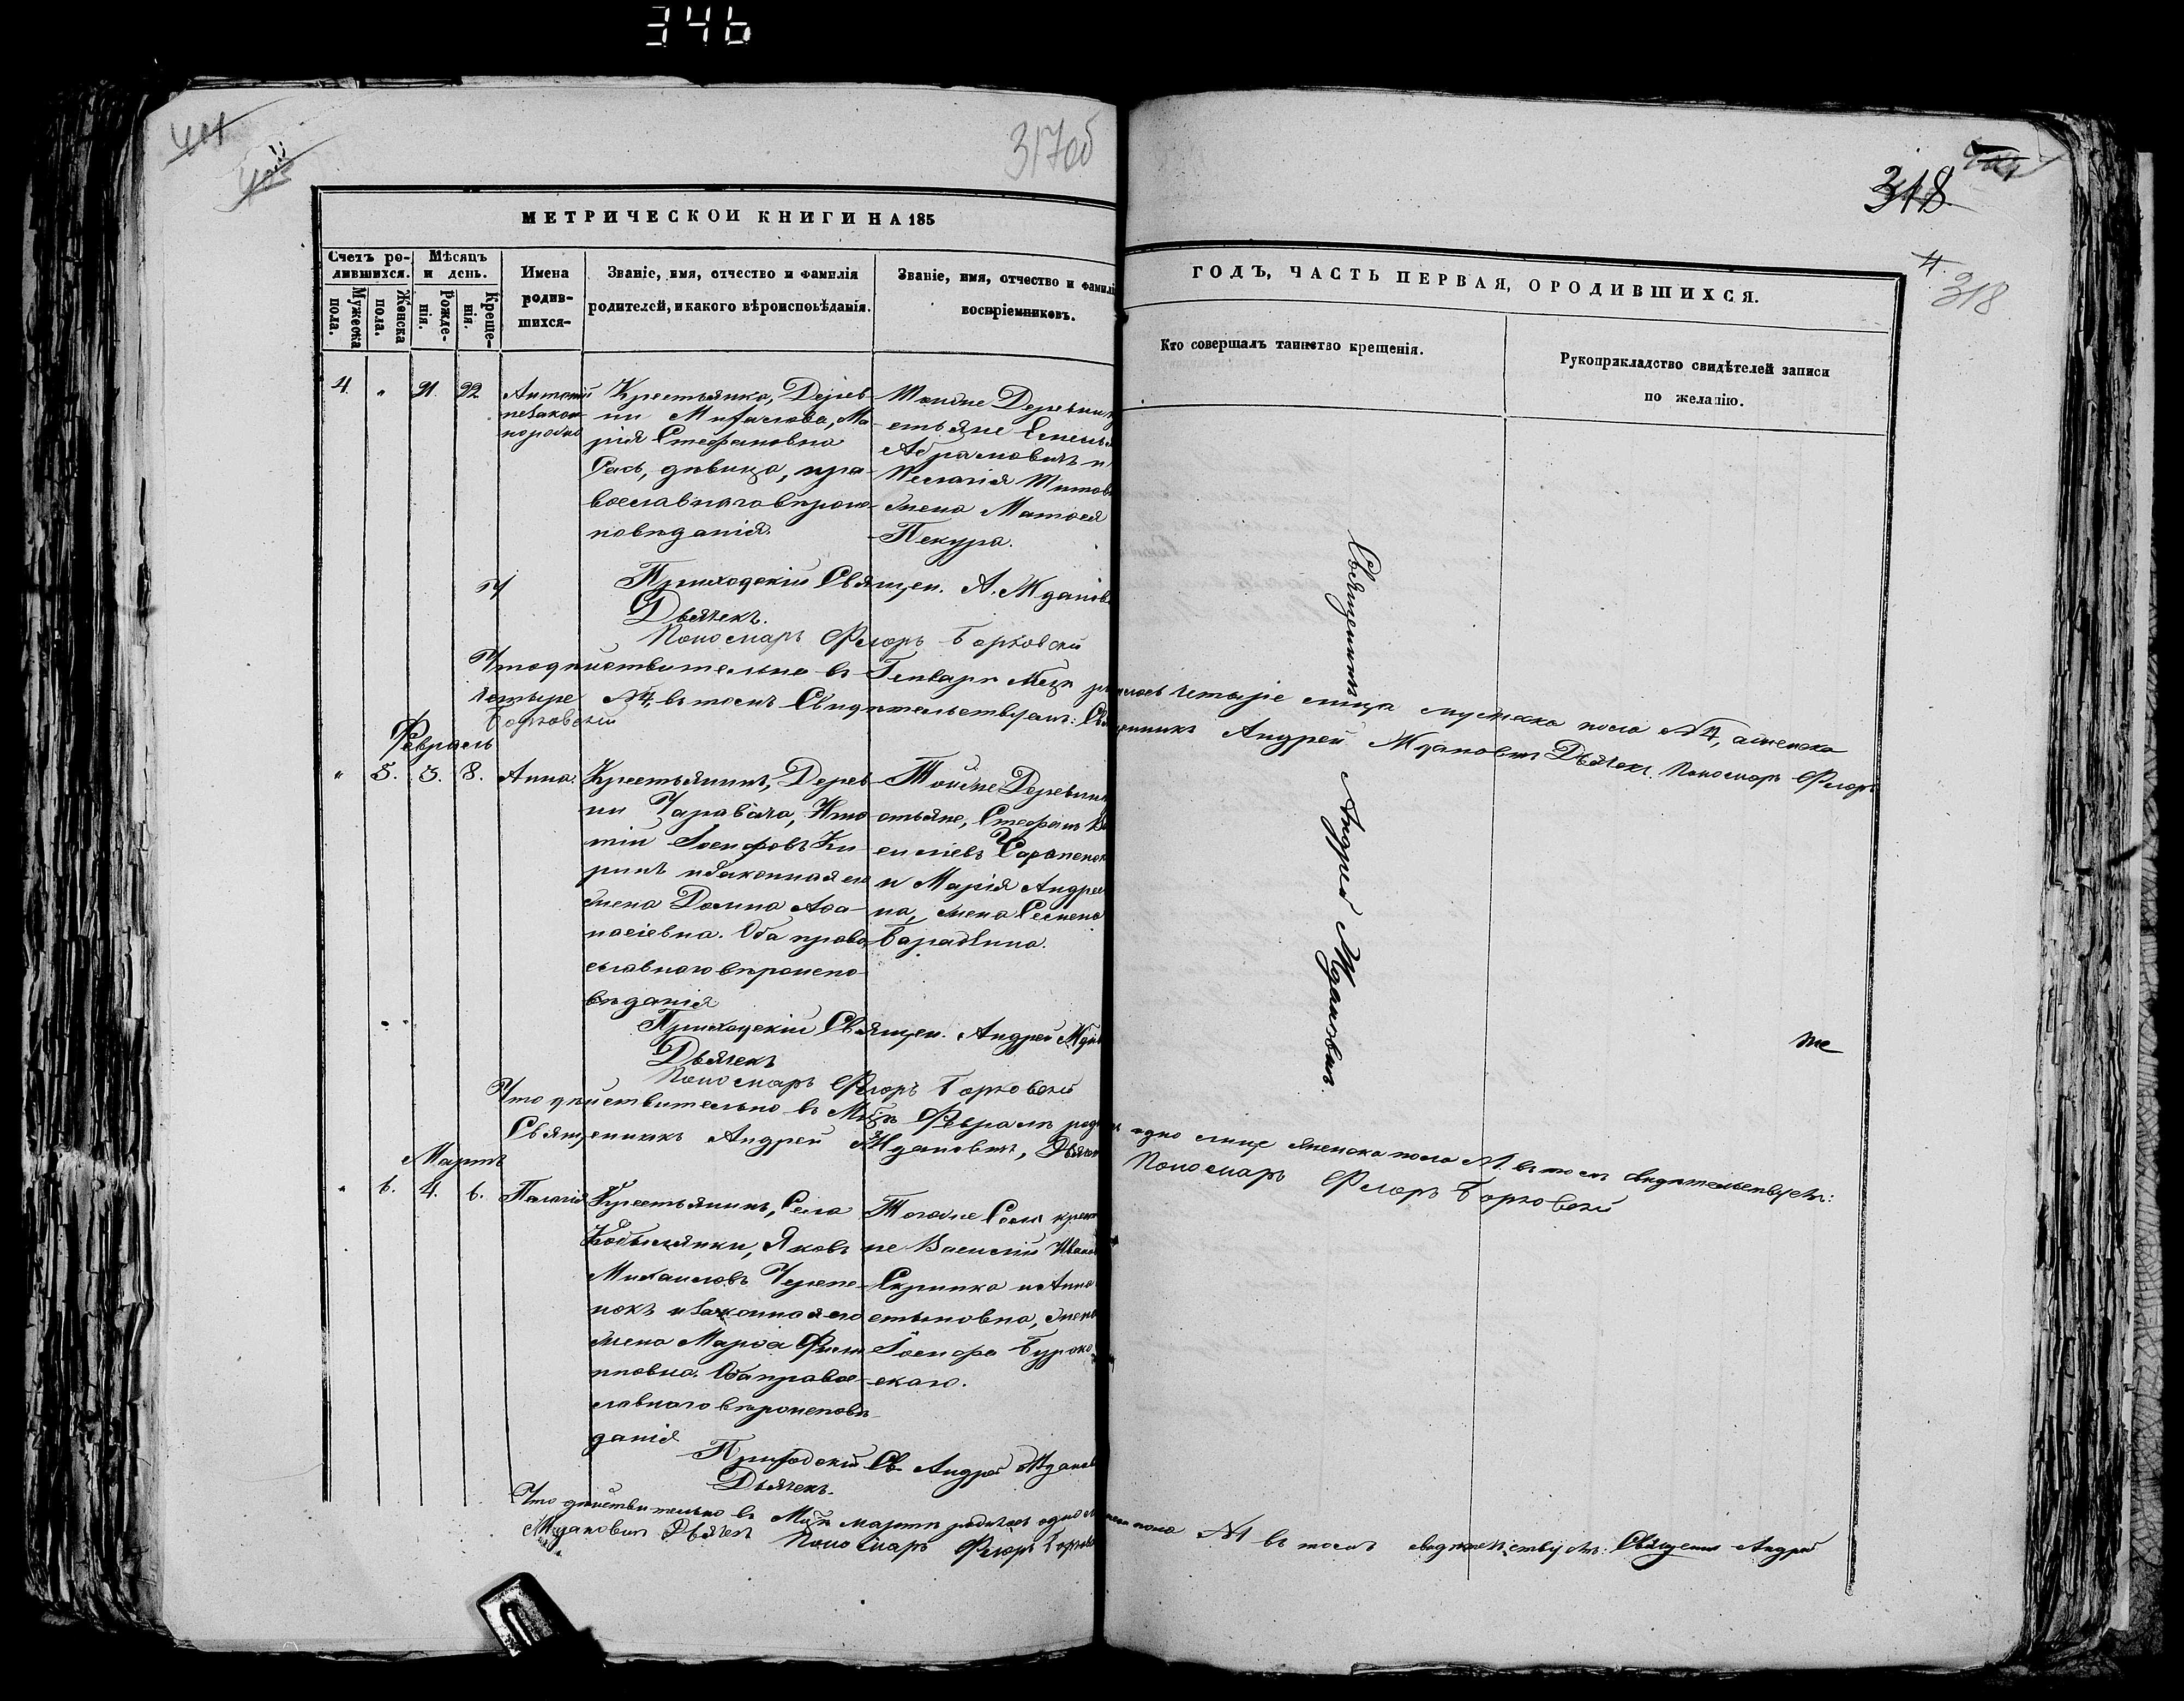 346
317об
318
318
МЕТРИЧЕСКОЙ КНИГИ НА 185
ГОДЪ, ЧАСТЬ ПЕРВАЯ, О РОДИВШИХСЯ.
Счетъ ро-
дившихся.
Мужеска
пола.
Женска
пола.
Мѣсяцъ
и день.
Рожде-
нія.
Креще-
нія.
Имена
родив-
шихся-
Званіе, имя, отчество и фамилія
родителей, и какого вѣроисповѣданія.
Званіе, имя, отчество и фамилі
воспріемниковъ.
Кто совершалъ таинство крещенія.
Рукоприкладство свидѣтелей записи
по желанію.
4. " 21. 22
Антоній
незакон
норожд
Крестьянка, Дерев
ни Михалова, Ма
рія Стефановна
дѣвица, пра
вославнаго вѣроис
повѣданія.
Тойже Деревни
естьяне
Абрамовичъ и
Пелагія Титов
жена Матѳея
Пекура.
Приходскій Священ. А. Жданов
Дьячекъ.
Пономарь Флоръ Борковскій
Что дѣйствительно въ Генварѣ Мцѣ четыре лица мужеска пола №4, а женска
четыре №4, въ томъ Свидѣтельствуемъ: Священникъ Андрей Ждановичъ Дьячекъ. Пономарь Флоръ
Борковскій
Февраль
" 5. 3. 8. Анна.
Крестьянинъ, Дерев
ни
Іосифовъ Ку
ринъ и законная его
жена Домна Аѳа
насіевна. Оба право
славнаго вѣроиспо
вѣданія
Тойже Деревни
стьяне, Стефанъ Ва
силіевъ
и Марія Андрее
на, жена Семена
Приходскій Священ. Андрей Жда
Дьячекъ
Пономарь Флоръ Борковскій
Что дѣйствительно въ Мцѣ Февралѣ родил одно лице женска пола №1. въ томъ свидѣтельствуемъ:
Священникъ Андрей Ждановичъ, Дьячекъ Пономарь Флоръ Борковскій
Мартъ
" 6. 4. 6. Пелагія
Крестьянинъ, Села
Кобылянки, Яковъ
Михаиловъ Черепе-
нокъ и законная его
жена Марѳа Фили
пповна. Оба право-
славнаго вѣроисповѣ
данія
Тогоже Села крест
не Василій Иван
Скрипка и Анна
стьиновна, жена
Іосифа Бурков
скаго.
Приходскій Св. Андрей Жданов
Дьячекъ.
Что дѣйствительно въ Мцѣ мартѣ родилось одно пола №1 въ томъ свидѣтельствуемъ: Священникъ Андрей
Ждановичъ Дьячекъ Пономарь Флоръ Борков
Священникъ Андрей Ждановичъ.